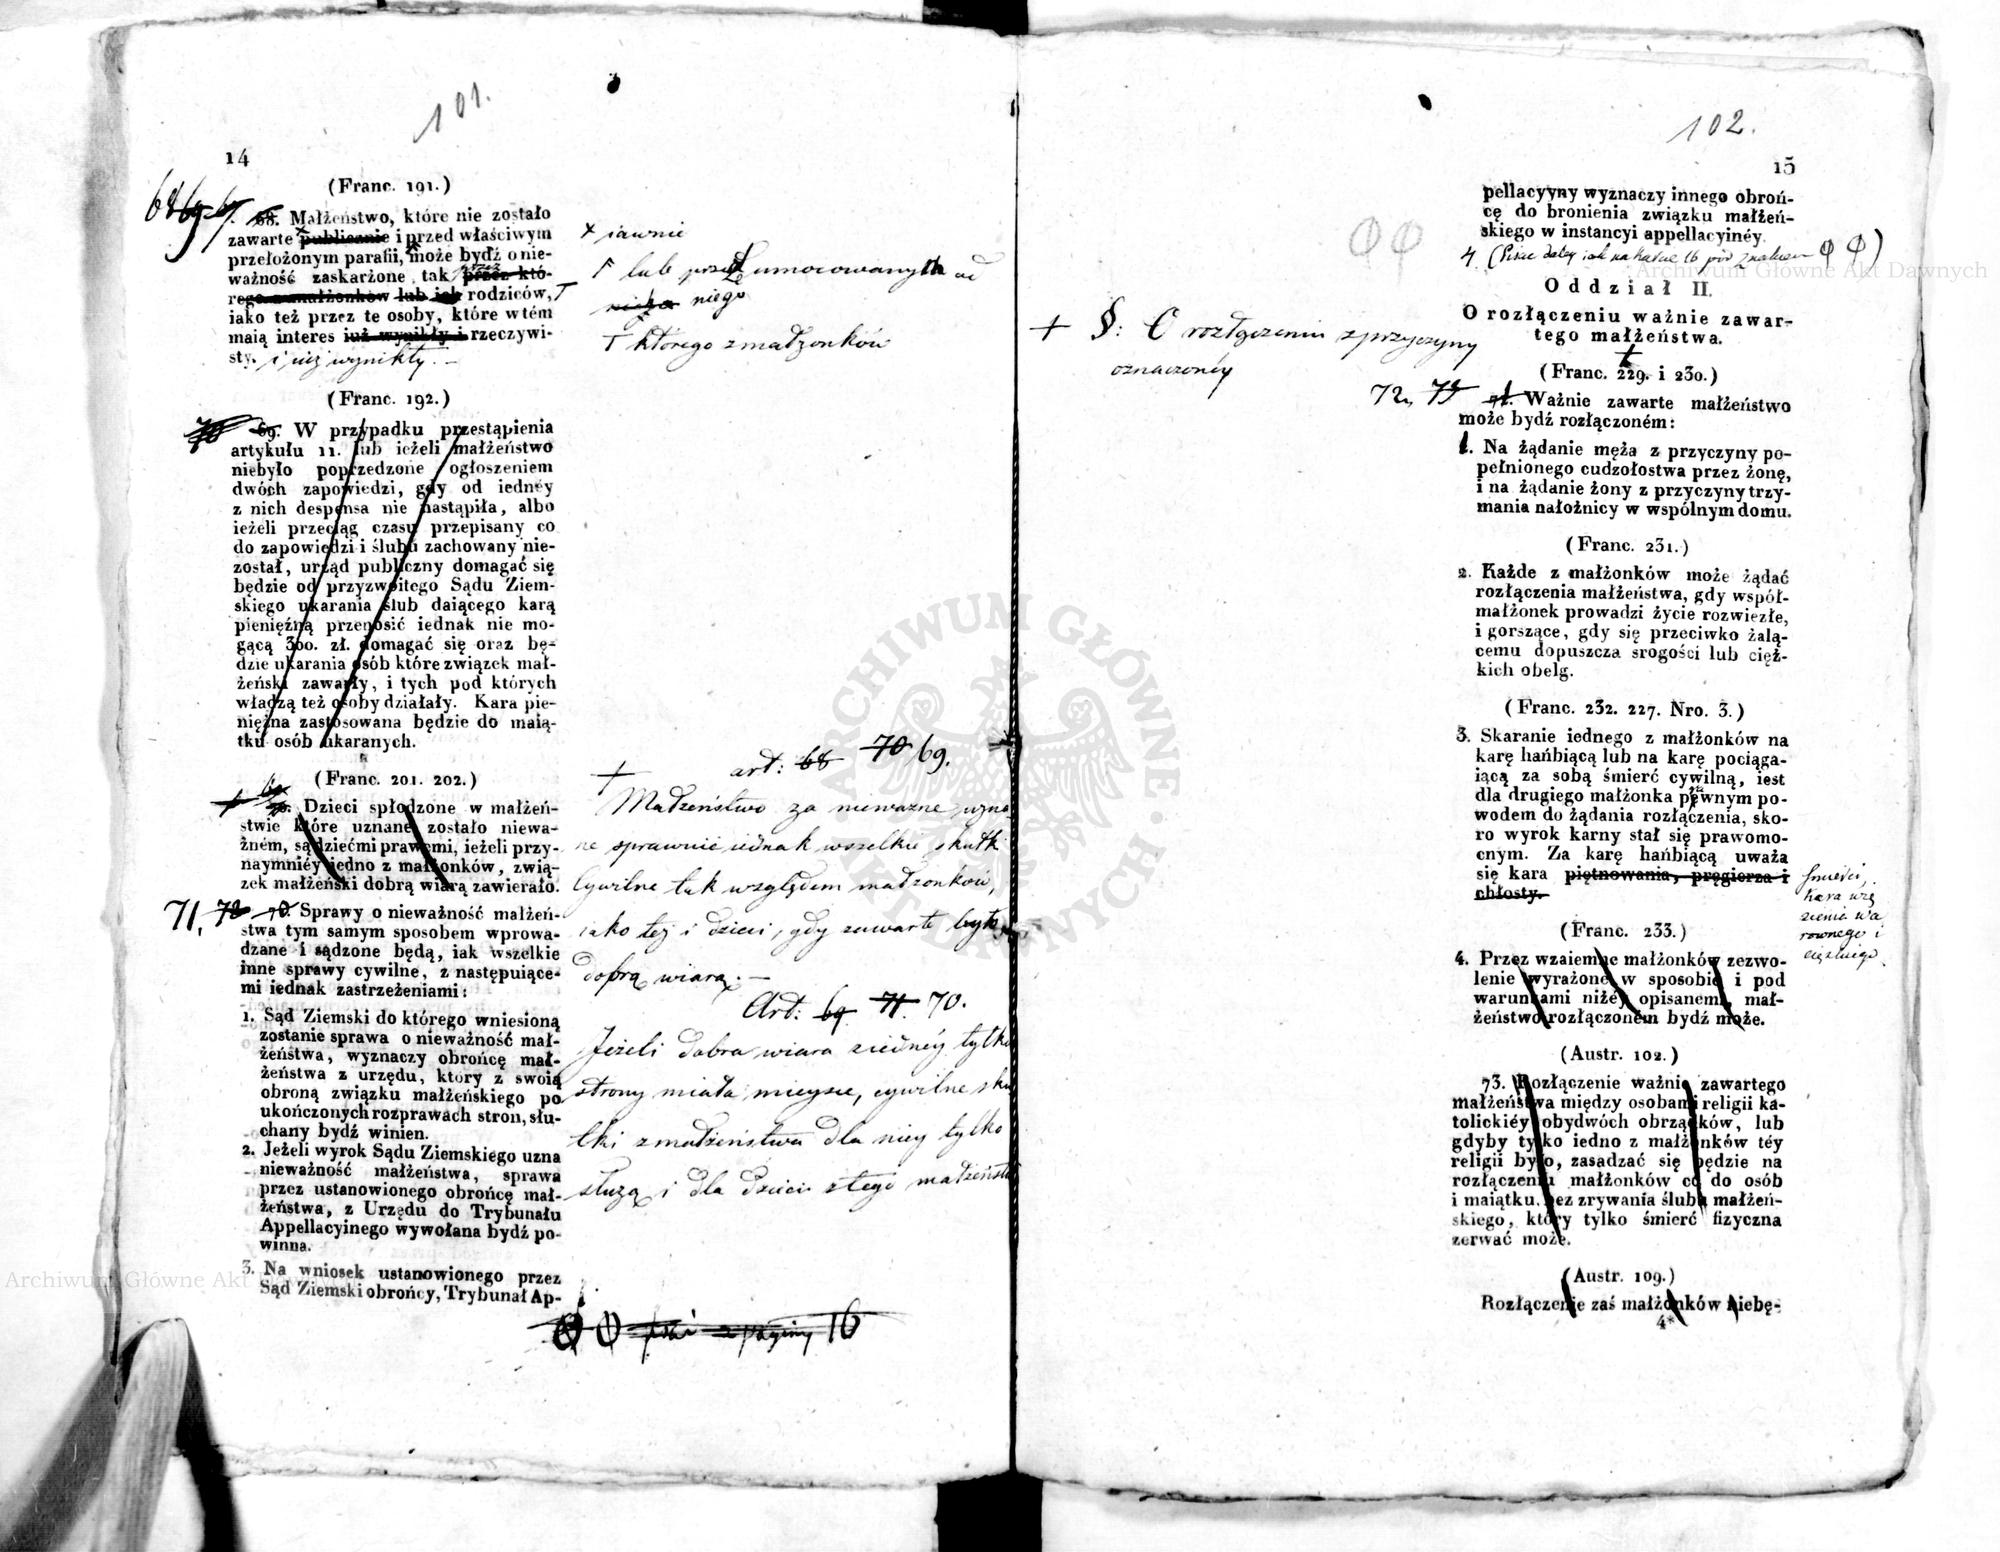 101.
14
(Franc. 191.)
68. Małżeństwo, które nie zostało
zawarte publicznie i przed właściwym
przełożonym parafii, może bydź o nie-
ważność zaskarżone, tak przez przez któ-
rego z małżonków lub ich rodziców,
iako też przez te osoby, które w tém
maią interes iuż wynikły i rzeczywi-
sty. i iuż wynikły. —
+ iawnie
lub przez umocowanych od
niego
którego z małżonków
(Franc. 192.)
70 69. W przypadku przestąpienia
artykułu 11. lub ieżeli małżeństwo
niebyło poprzedzone ogłoszeniem
dwóch zapowiedzi, gdy od iednéy
z nich despensa nie nastąpiła, albo
ieżeli przeciąg czasu przepisany co
do zapowiedzi i ślubu zachowany nie-
został, urząd publiczny domagać się
będzie od przyzwoitego Sądu Ziem-
skiego ukarania ślub daiącego karą
pieniężną przenosić iednak nie mo-
gącą 300. zł. domagać się oraz bę-
dzie ukarania osób które związek mał-
żeński zawarły, i tych pod których
władzą też osoby działały. Kara pie-
niężna zastosowana będzie do maią-
tku osób ukaranych.
(Franc. 201. 202.)
Dzieci spłodzone w małżeń-
stwie które uznane zostało niewa-
żném, są dziećmi prawemi, ieżeli przy-
naymniéy iedno z małżonków, zwią-
zek małżeński dobrą wiarą zawierało.
71, 72 Sprawy o nieważność małżeń-
stwa tym samym sposobem wprowa-
dzane i sądzone będą, iak wszelkie
inne sprawy cywilne, z następuiące-
mi iednak zastrzeżeniami:
1. Sąd Ziemski do którego wniesioną
zostanie sprawa o nieważność mał-
żeństwa, wyznaczy obrońcę mał-
żeństwa z urzędu, który z swoią
obroną związku małżeńskiego po
ukończonych rozprawach stron, słu-
chany bydź winien.
2. Jeżeli wyrok Sądu Ziemskiego uzna
nieważność małżeństwa, sprawa
przez ustanowionego obrońcę mał-
żeństwa, z Urzędu do Trybunału
Appellacyinego wywołana bydź po-
winna.
3. Na wniosek ustanowionego przez
Sąd Ziemski obrońcy, Trybunał Ap-
art: 68 70 69.
+
Małżeństwo za nieważne uzna-
ne sprawuie iednak wszelkie skutki
Cywilne tak względem małżonków,
iako też i dzieci, gdy zawarte było
dobrą wiarą. —
Art: 69 71. 70.
Jeżeli dobra wiara z iednéy tylko
strony miała mieysce, cywilne sku-
tki z małżeństwa dla niey tylko
służą i dla dzieci z tego małżeństwa
z paginy 16
102.
15
pellacyyny wyznaczy innego obroń-
cę do bronienia związku małżeń-
skiego w instancyi appellacyinéy.
4. (Pisać daley iak na karcie 16 pod znakiem Φ Φ)
Φ Φ
Oddział II.
O rozłączeniu ważnie zawar-
tego małżeństwa.
+ §: O rozłączeniu z przyczyny
oznaczonéy
(Franc. 229. i 230.)
72, 73 Ważnie zawarte małżeństwo
może bydź rozłączoném:
1. Na żądanie męża z przyczyny po-
pełnionego cudzołostwa przez żonę,
i na żądanie żony z przyczyny trzy-
mania nałożnicy w wspólnym domu.
(Franc. 231.)
2. Każde z małżonków może żądać
rozłączenia małżeństwa, gdy współ-
małżonek prowadzi życie rozwiezłe,
i gorszące, gdy się przeciwko żalą-
cemu dopuszcza srogości lub cięż-
kich obelg.
(Franc. 232. 227. Nro. 3.)
3. Skaranie iednego z małżonków na
karę hańbiącą lub na karę pociąga-
iącą za sobą śmierć cywilną, iest
dla drugiego małżonka pewnym po-
wodem do żądania rozłączenia, sko-
ro wyrok karny stał się prawomo-
cnym. Za karę hańbiącą uważa
się kara piętnowania, pręgierza i
chłosty.
śmierci,
kara wię
zienia wa
rownego i
ciężkiego.
(Franc. 233.)
4. Przez wzaiemne małżonków zezwo-
lenie wyrażone w sposobie i pod
warunkami niżéy opisanemi, mał-
żeństwo rozłączoném bydź może.
(Austr. 102.)
73. Rozłączenie ważnie zawartego
małżeństwa między osobami religii ka-
tolickiéy obydwóch obrządków, lub
gdyby tylko iedno z małżonków téy
religii było, zasadzać się będzie na
rozłączeniu małżonków co do osób
i maiątku, bez zrywania ślubu małżeń-
skiego, który tylko śmierć fizyczna
zerwać może.
(Austr. 109.)
Rozłączenie zaś małżonków niebę-
4*
ARCHIWUM GŁÓWNE AKT DAWNYCH
Archiwum Główne Akt Dawnych
Archiwum Główne Akt Dawnych